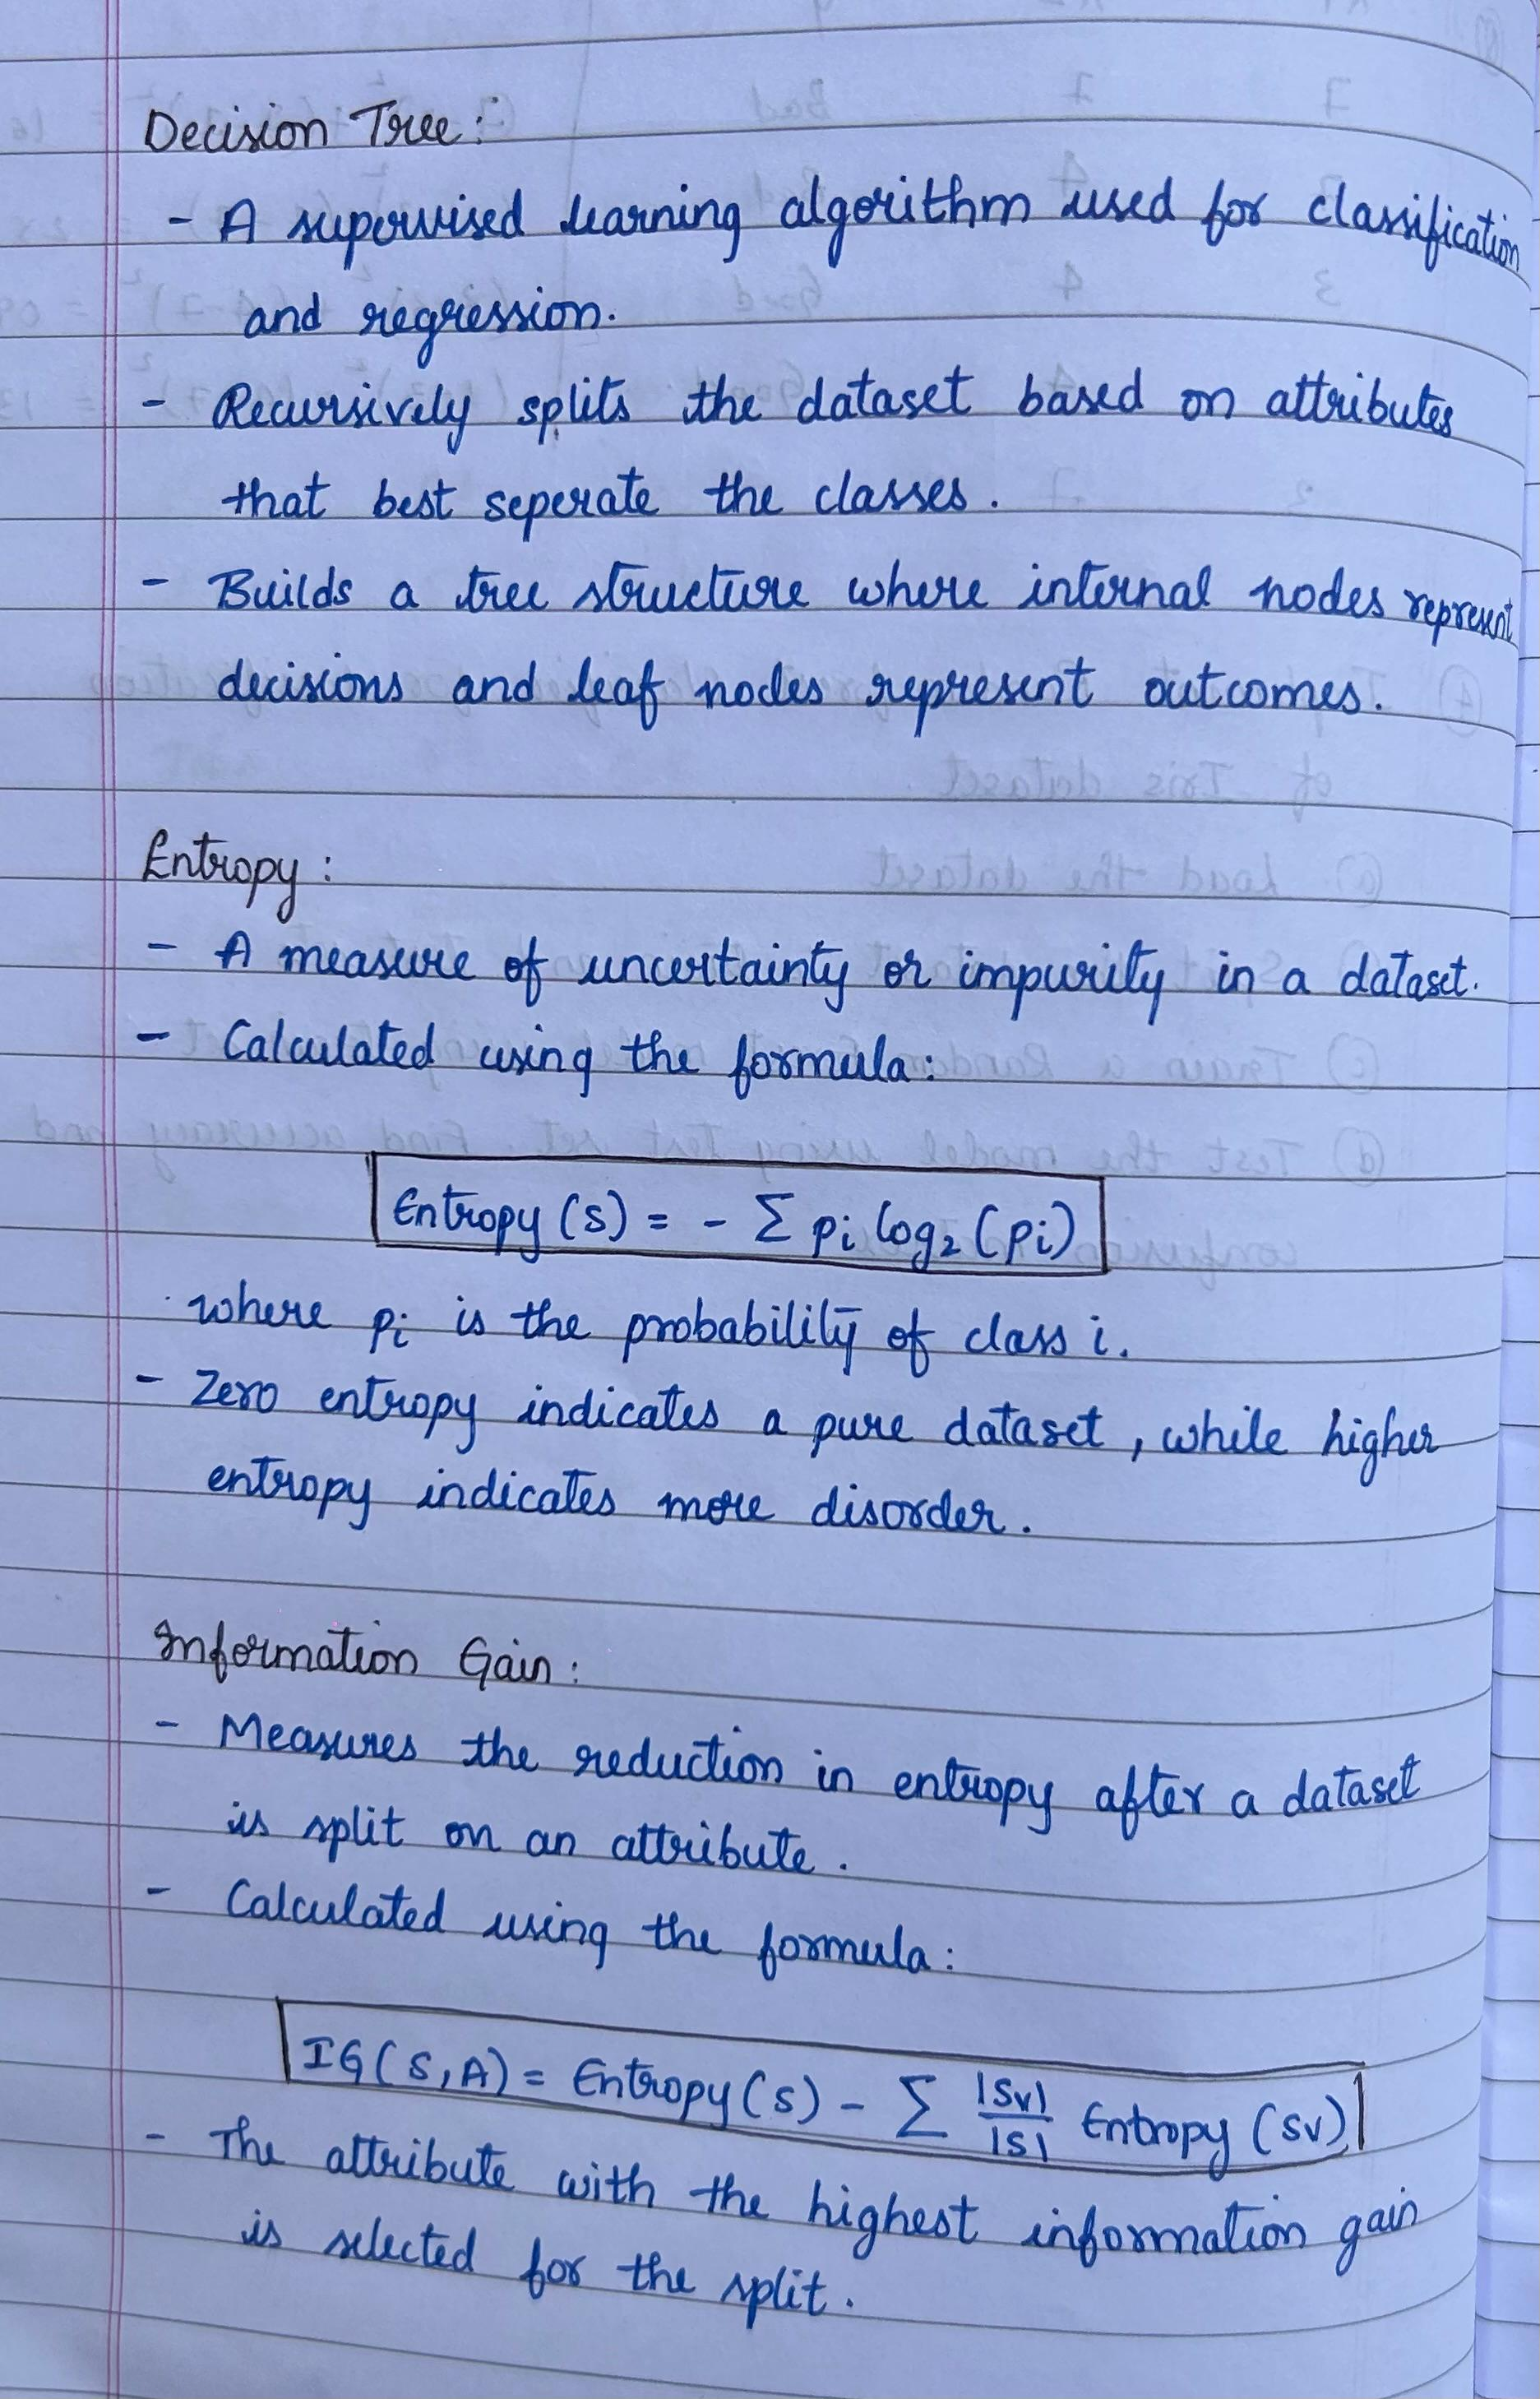 Decision Tree :
- A supervised learning algorithm used for classification
and regression.
- Recursively splits the dataset based on attributes
that best seperate the classes.
- Builds a tree structure where internal nodes represent
decisions and leaf nodes represent outcomes.
Entropy :
- A measure of uncertainty or impurity in a dataset.
- Calculated using the formula:
Entropy (S) = - Σ pi log₂ (pi)
where pi is the probability of class i.
- Zero entropy indicates a pure dataset, while higher
entropy indicates more disorder.
Information Gain :
- Measures the reduction in entropy after a dataset
is split on an attribute.
- Calculated using the formula:
IG(S,A) = Entropy(S) - Σ |Sv|/|S| Entropy (Sv)
- The attribute with the highest information gain
is selected for the split.